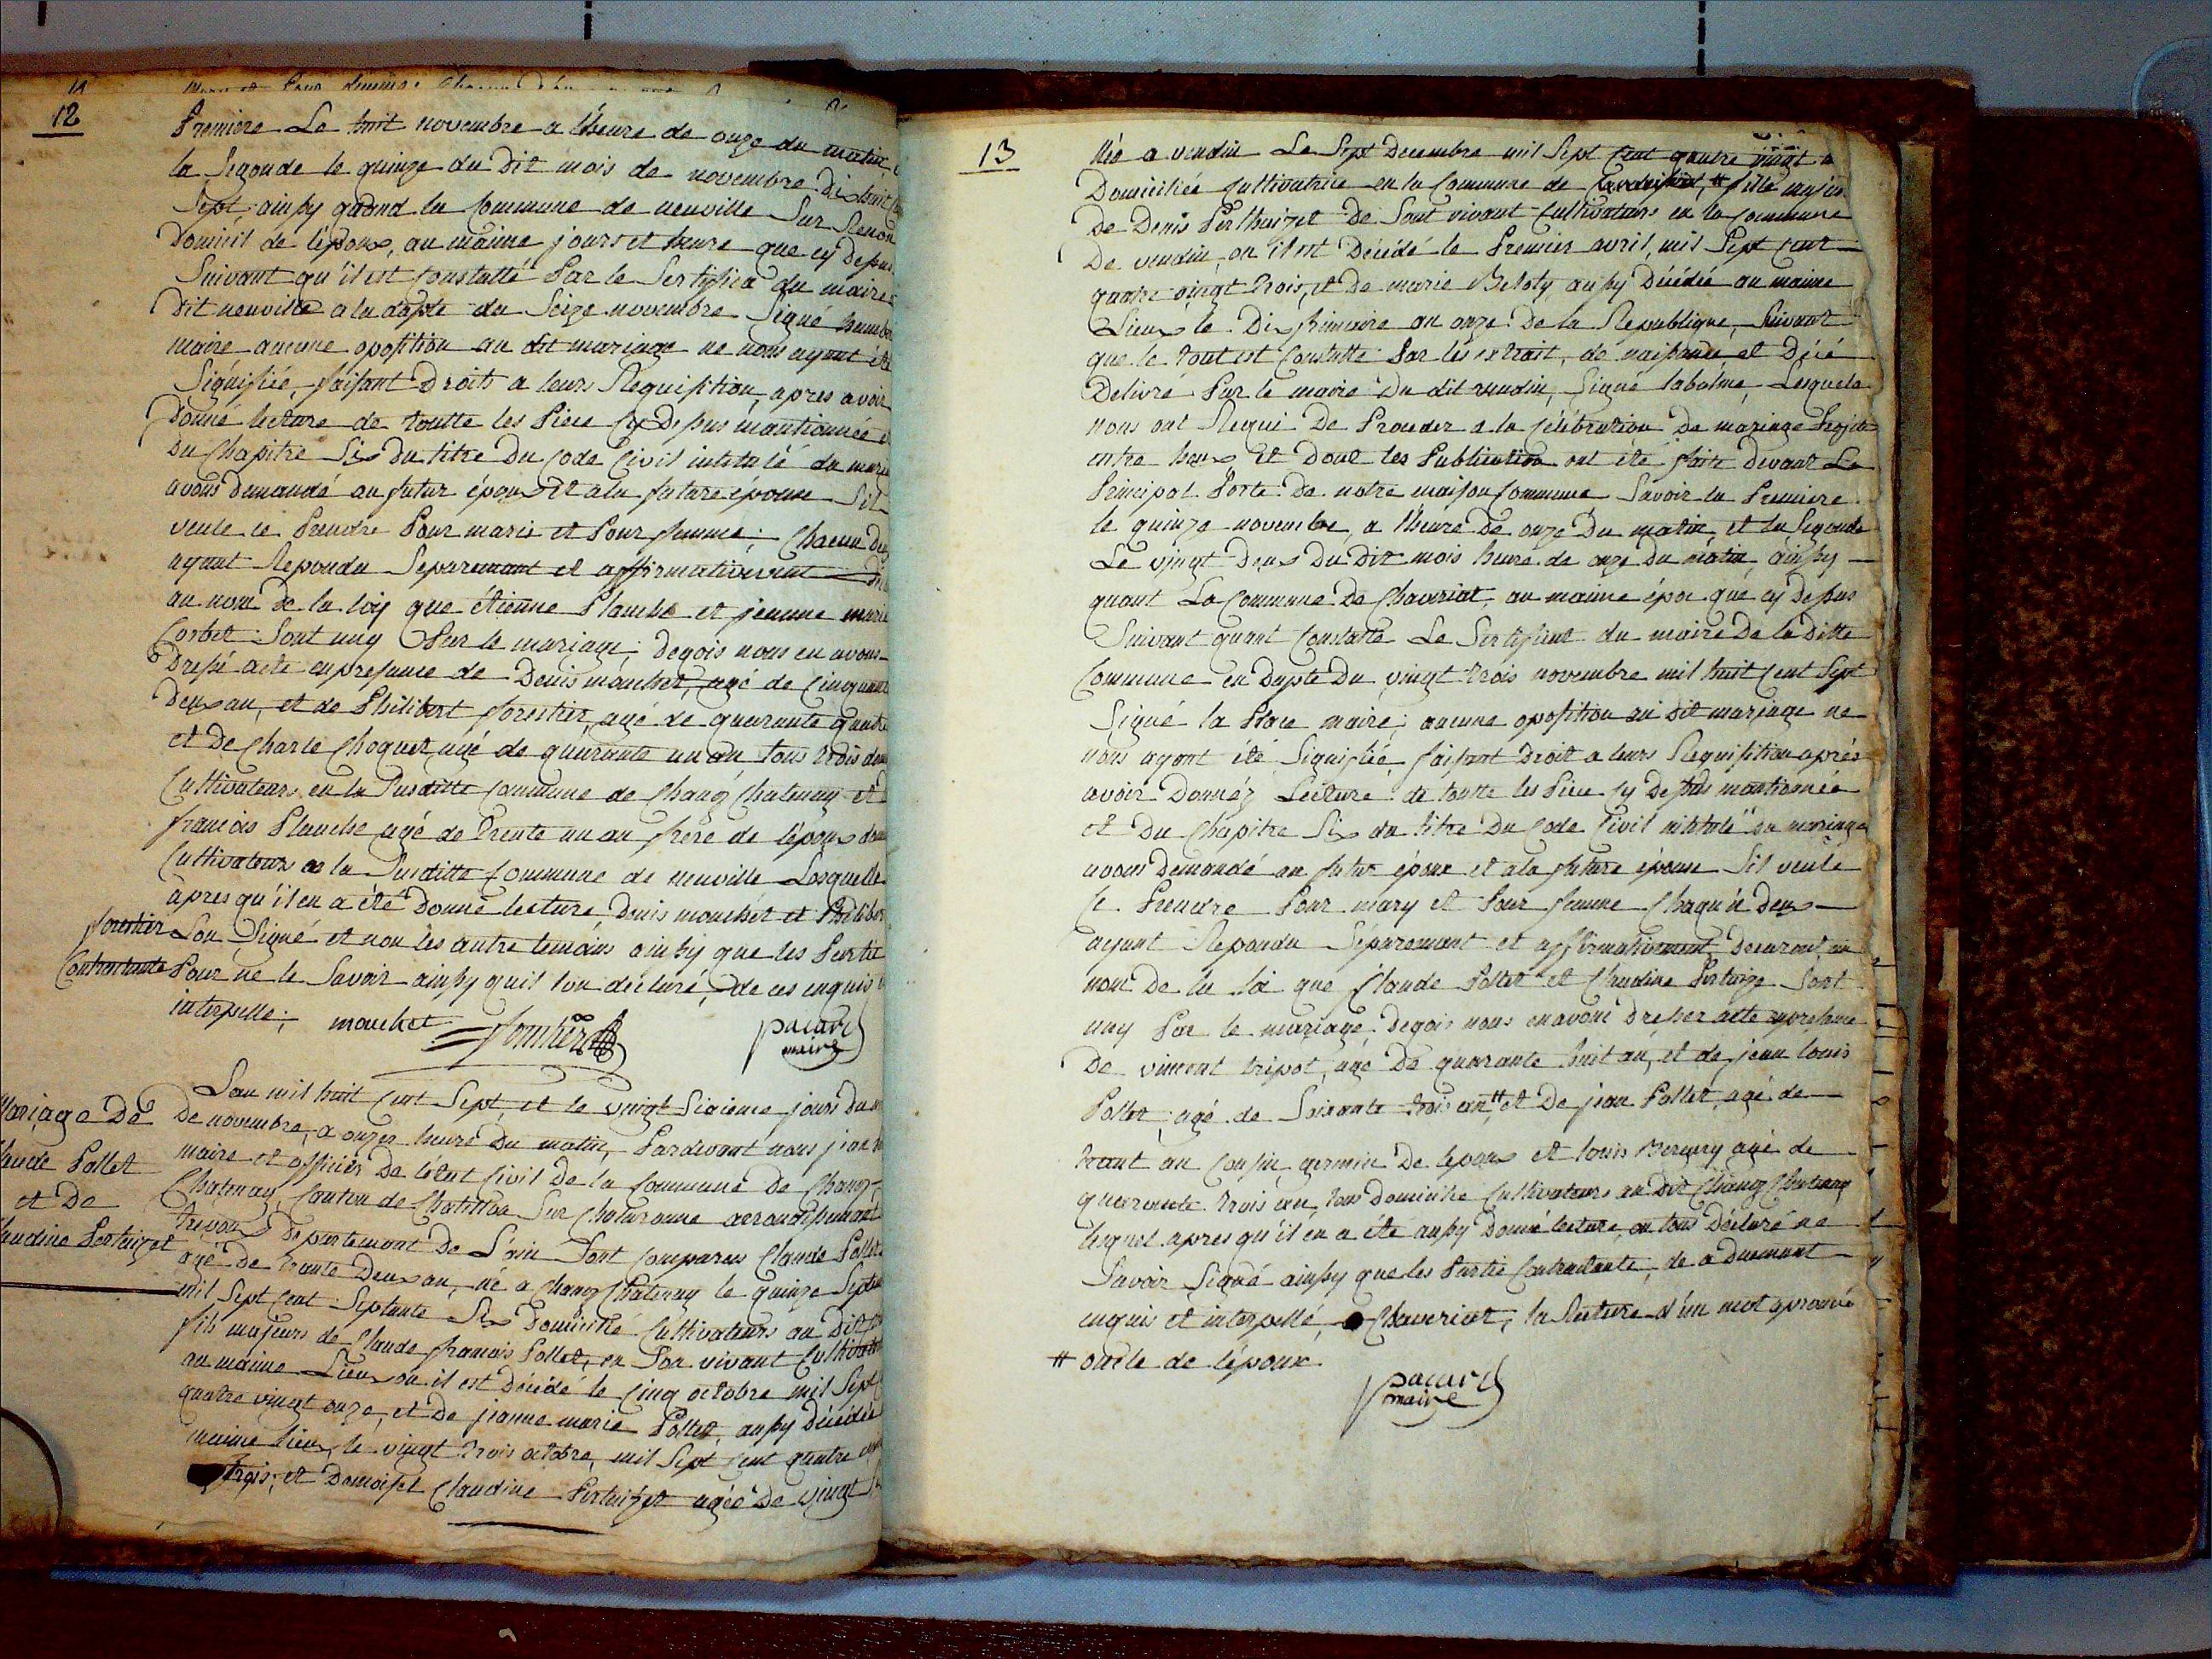 12
Premiere Le huit novembre a l'heure de onze du matin
la Segonde le quinze du Dit mois de novembre Dixhuit
Sept, ainsy quand la Commune de neuville Sur Renon
Domicil de l'époux, au maime jours et heure que cy Depus
Suivant qu'il est Constatté Par le Sertifica du maire
Dit neuville a la dapte du Seize novembre Signé
maire aucune oposition au dit mariage ne nous ayant été
Signifiée, faisant Droits a leurs Requisition, apres avoir
Donné lecture de toutte les Piece Cy Depus mantionnee
Du Chapitre Six Du titre Du Code Civil intitulé du
avons Demandé au futur époux Et a la future épouse Sil
veule ce Prendre Pour marie et Pour femme; Chacun
ayant Repondu Separemant et affirmativemant
au nom De la loy que étienne Planche et jeanne marie
Corbet Sont uny Par le mariage; Deqois nous en avons
Dressé acte enpresance de Denis mouchet, agé de Cinquante
Deux an, et de Philibert forestier, agé de quarante quatre
et De Charle Choquet agé de quarante un an tous trois
Cultivateurs en la Susditte Commune de Chanoz Chatenay et
francois Planche agé de trente un an frere de l'époux
Cultivateurs a la Susditte Commune de neuville Losquelle
apres qu'il en a été Donné lecture Denis mouchet et Philibert
forestier Son Signé et non les autre temoins ainsy que les Partie
Contractante Pour ne le Savoir ainsy quil lon déclaré, de ces enquis
interpelle; mouchet forestier pacard
maire
Mariage De
Claude Pollet
et De
Claudine Pertuizet
Lan mil huit Cent Sept, et le vingt Sixieme jours du
De novembre, a onzes heure Du matin, Pardevant nous jean
maire et officier De l'état Civil de la Commune De Chanoz
Chatenay, Canton de Chatillon Sur Chalaronne arrondissemant
Trevoux Departemant De L'ain Sont Comparus Claude Pollet
agé De trante Deux an, né a Chanoz Chatenay le quinze Septembre
mil Sept Cent Septante Six Domicilié Cultivateurs au Dit
fils majeurs de Claude francois Pollet, en Son vivant Cultivateur
au maime Lieux ou il est Décédé le Cinq octobre mil Sept
quatre vingt onze, et De jeanne marie Pollet, ausy Décédée
maime lieu, le vingt trois octobre, mil Sept cent quatre
trois; et Damoisel Claudine Pertuizet agée De vingt
13
Née a vendin Le Sept Decembre mil Sept Cent quatre vingt
Domiciliée Cultivatrice en la Commune de # fille majeur
De Denis Perthuizet De Sont vivant Cultivateurs en la Commune
De vendin, ou il est Décédé le Premier avril, mil Sept Cent
quatre vingt trois, et De marie Beloty, ausy Décédée au maime
Lieux le Dix frimaire an onze De la Republique, Suivant
que le tout est Constatté Par les extrait, de naissance et Décé
Delivré Par le maire Du dit vendin, Signé labalme, Lesquels
nons ont Requi De Proceder a la célébration De mariage Projeté
entre heux Et Dont les Publication ont été faite Devant La
Principal Porte De notre maison Commune Savoir la Premiere
le quinze novembre, a l'heure De onze Du matin, et la Segonde
Le vingt Deux Du Dit mois heure de onze Du matin, ainsy
quant La Commune De Chaveriat, au maime épox que cy Depus
Suivant quant Constatte Le Sertificat du maire De la Ditte
Commune en Dapte Du vingt trois novembre mil huit Cent Sept
Signé la Place maire; aucune oposition au Dit mariage ne
nous ayant été Signifiée, faisant Droit a leurs Requisition aprés
avoir Donnéz Lecture de toutte les Piece Cy Depus mantionnée
et Du Chapitre Six du titre Du Code Civil intitulé Du mariage
avons Demandé au futur époux et a la future épouse Sil veule
Ce Prendre Pour mary et Pour femme Chaqu'n Deux
ayant Repondu Séparemant et affirmativemant, au
nom De la loi que Claude Pollet et Claudine Pertuize Sont
uny Par le mariage Deqois nous en avons Dresser acte
De vincent tripot, agé De quarante huit an, et de jean louis
Pollet, agé de Soixante trois an # et De jean Pollet, agé de
trant an Cousin germin De lepoux et louis Mercury agé de
quarante trois an, tous Domicilie Cultivateurs au Dit Chanoz Chatenay
lequel apres qu'il en a été ausy Donné lecture, on tous Déclaré ne
Savoir Signé ainsy que les Partie Contractante, de a Duemant
enquis et interpellé, Chaveriat, la Rature d'un mot aprouvé
# oncle de l'époux
pacard
maire